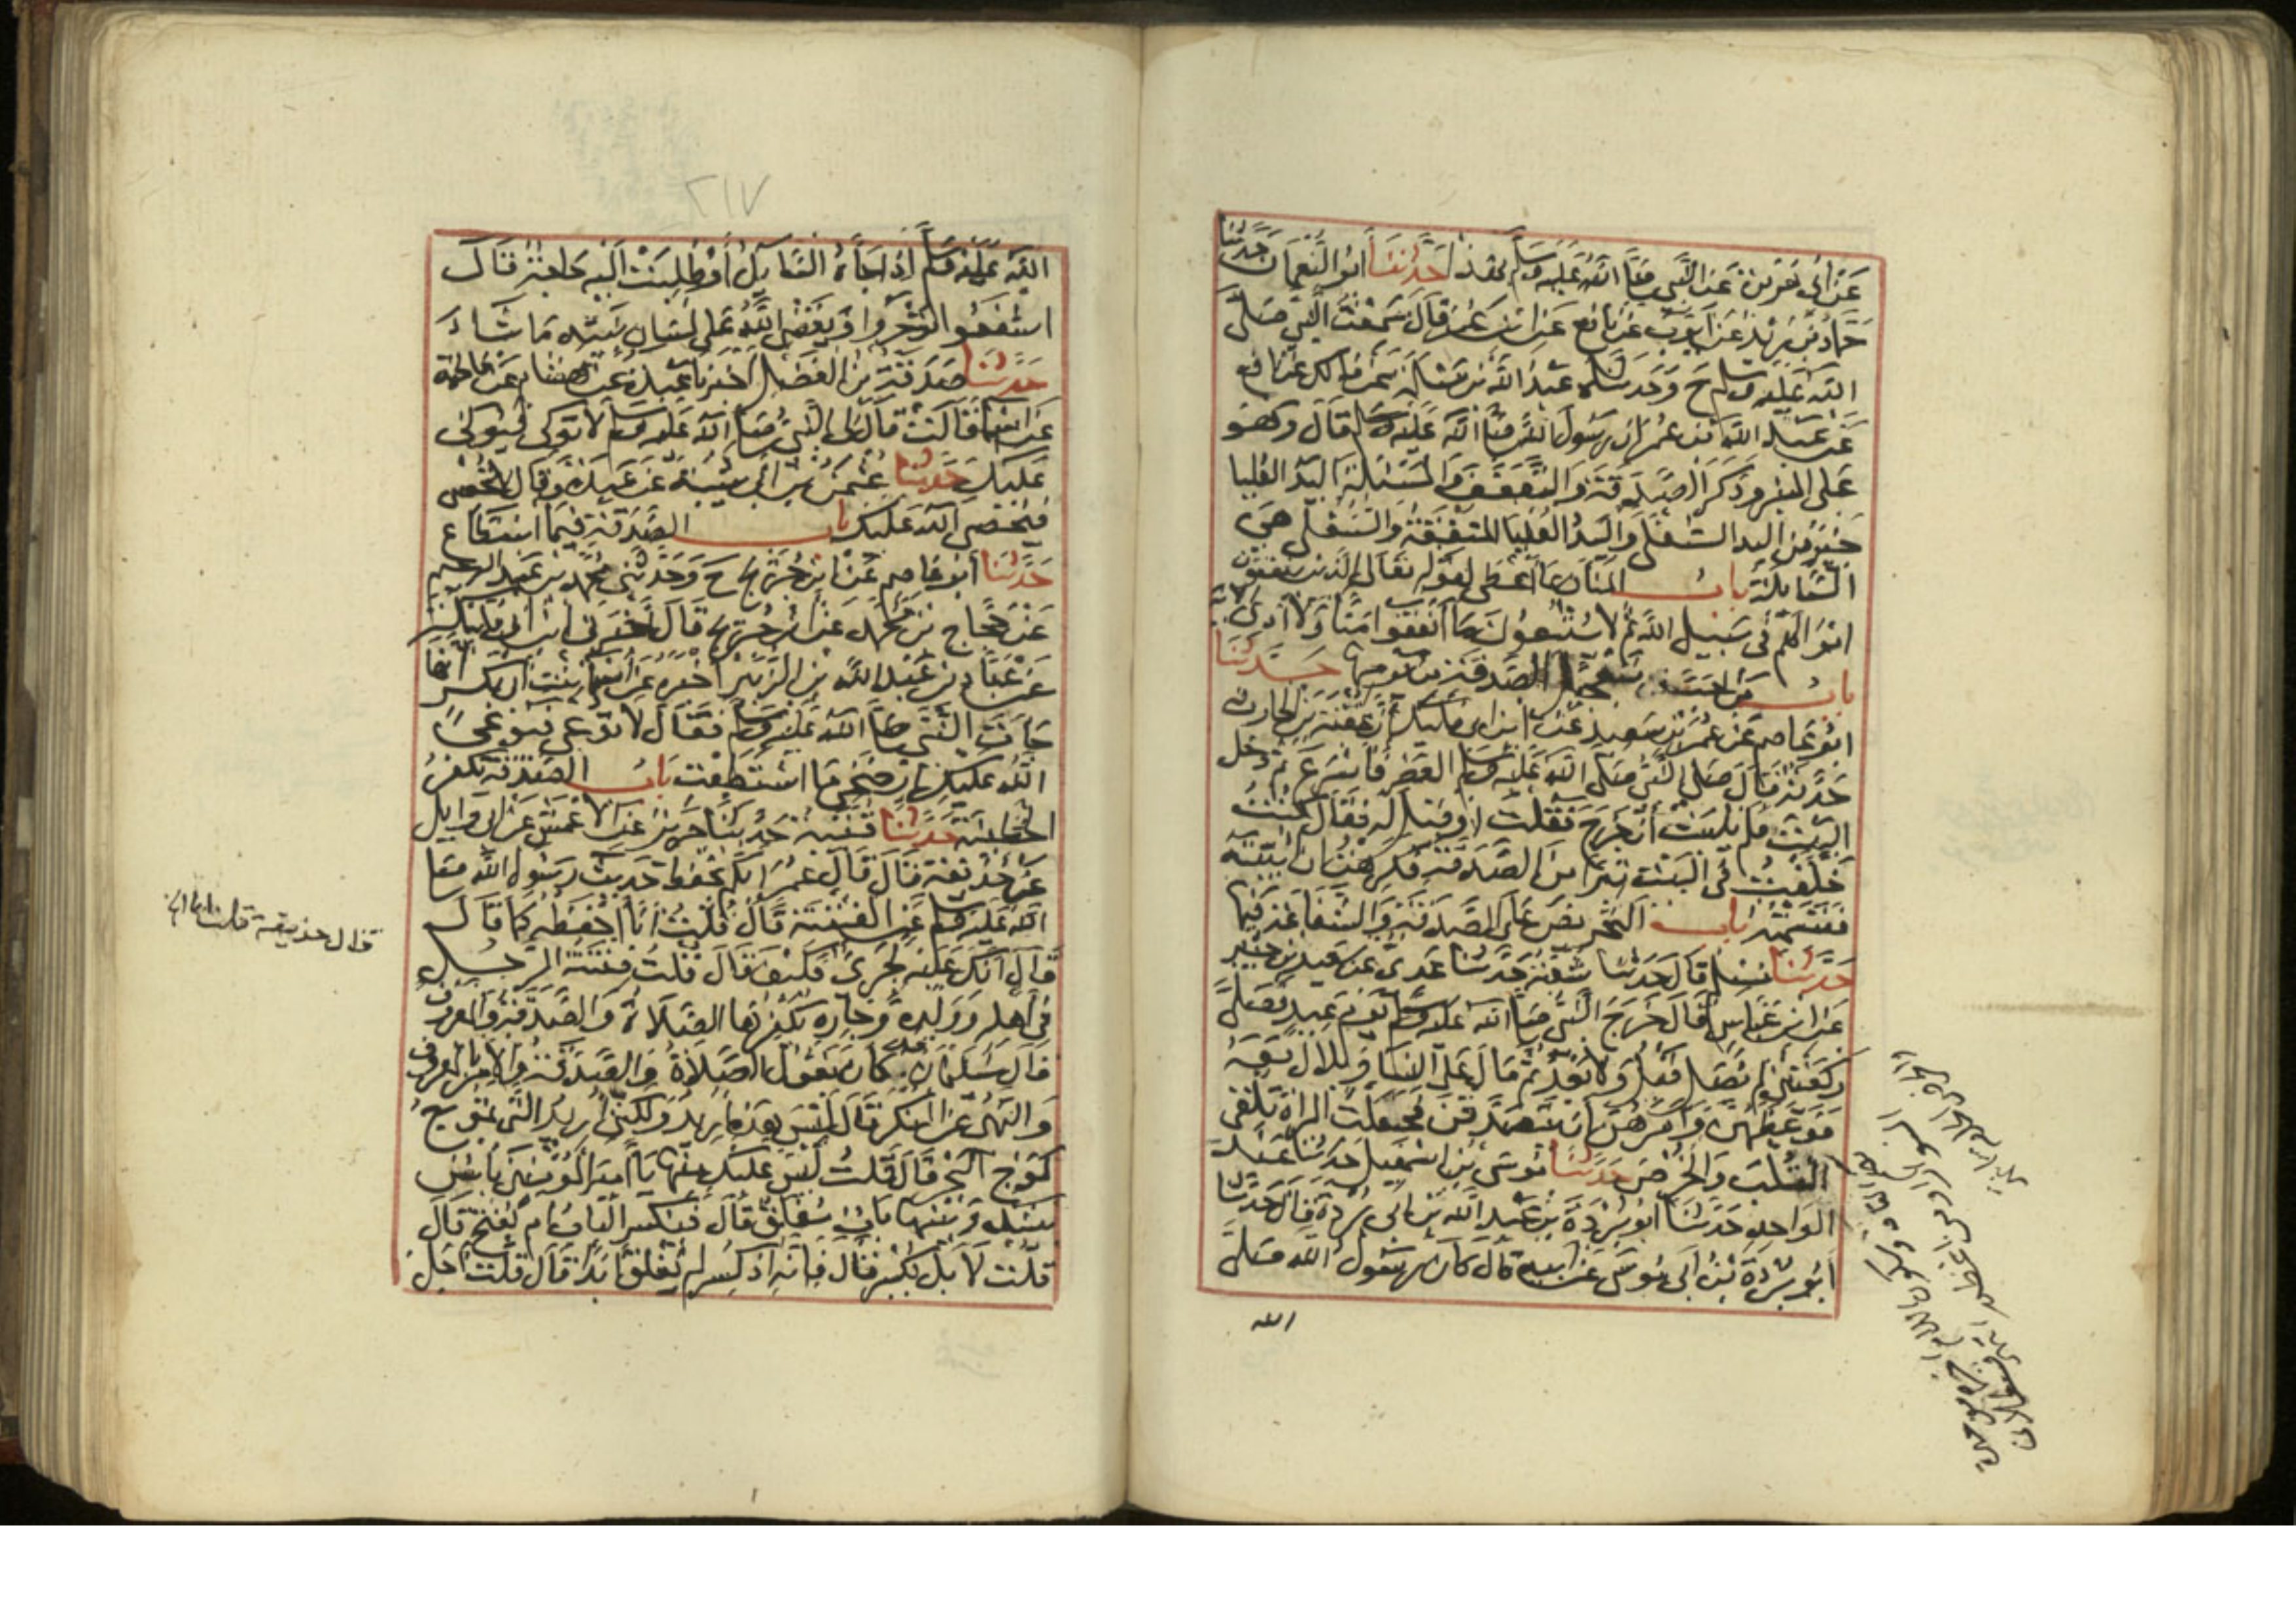 عَن أبي هُرَيرةَ عَن النَّبي صَلَّى اللهُ عَلَيه وسلم بهذا حَدَّثنَا أبُو النُّعمان حَدَّثنا
حَمادُ بنُ زَيْدٍ عَن أيوُّبَ عَن نافِع عَن ابن عُمَر قالَ سَمِعْتُ النَّبي صَلَّى
الله عَلَيْه وسلم ح وَحَدثنا عَبدُ الله بن مَسْلَمَة عَن مالِكٍ عَن نافع
عَن عَبد الله بن عُمَر ان رَسُولَ الله صَلَّى اللهُ عَلَيْه وسلم قَالَ وهُو
عَلى المِنبَر وَذَكَرَ الصَّدقَةَ وَالتَّعَفُّفَ وَالمَسْئلةَ اليَدُ العُليا
خَيْرٌ مِنَ اليد السُّفلَى وَاليَدُ العُلْيَا المُنْفِقَةُ وَالسُّفْلَى هِيَ
السَّايلَةُ بَابُ المَنَّان بمَا أعْطَى لِقَوْلِهِ تَعَالَى الَّذينَ يُنفقُون
امْوَالَهُم في سَبِيل اللهِ ثُمَّ لا يُتْبِعُونَ مَا أنفَقُوا مَنًّا وَلا أذًى الآية
بابُ مَن احَبَّ تَعجيلَ الصَّدقَةِ من يَومِهَا حَدَّثنَا
ابُو عَاصِم عَن عُمَرَ بن سَعِيدٍ عَن ابن أبي مُلَيكَةَ أنَّ عُقْبَةَ بن الحَارث
حَدَّثهُ قَالَ صَلى النَّبيُ صَلَّى اللهُ عَلَيْه وسلم العَصرَ فأسْرعَ ثم دَخل
البَيْتَ فلم يَلبَث أن خَرَجَ فَقُلتُ او قِيلَ لَهُ فقَالَ كُنتُ
خَلَّفْتُ في البَيْت تِبْرًا منَ الصَّدَقَةِ فكَرِهْتُ ان أُبَيِّتَه
فَقَسَمْتُه بابُ التَّحْريضِ عَلَى الصَّدَقَةِ وَالشَّفاعَة فيهَا
حَدَّثنَا مُسْلِم قالَ حَدَثنا شُعْبَةُ حَدَّثنَا عَدِىٌّ عَن سَعيد بن جُبَيرٍ
عَن ابن عَبَّاس قَالَ خَرَجَ النَّبي صَلَّى اللهُ عَلَيْه وسلم يَوْمَ عِيدٍ فَصَلَّى
رَكعَتَيْن لم يُصَلِّ قَبلُ وَلا بَعْدُ ثُم مَالَ عَلَى النسَا وَبلالٌ مَعَهُ
فَوَعَظَهُنَّ وَأمَرَهُنَّ ان يَتَصَدَّقنَ فجَعَلَت المَرأةُ تُلْقِى
القُلْبَ وَالخُرْصَ حَدَّثنَا مُوسَى بنُ اسْمَعيلَ حَدَّثنَا عَبدُ
الوَاحِدِ حَدَّثنَا ابُو بُرْدَةَ بنُ عَبدِ الله بن أبي بُرْدَةَ قَالَ حَدَّثنَا
أبُو بُرْدَةَ بنُ أبي مُوسَى عَن أبيه قَالَ كَانَ رَسُولُ الله صَلَّى
الله
٢١٧
الله عَلَيْه وسلم إذا جَاءَهُ السَّايلُ أوْ طُلِبَتْ اليْهِ حَاجَةٌ قَالَ
اشفَعُوا تُؤْجَرُوا وَيَقْضِي اللهُ عَلَى لِسَان نَبيِّه مَا شَاءَ
حَدَّثنَا صَدَقَةُ بنُ الفَضْلِ أخْبَرَنا عَبدَةُ عَن هِشَام عَن فاطِمَة
عَن أسْمَا قَالَت قَالَ لِى النَّبيُّ صَلَّى اللهُ عَلَيْه وسلم لا تُوكى فَيُوكَى
عَليْكِ حَدَّثنَا عُثْمَنُ بن أبي شَيْبَةَ عَن عَبدَةَ وَقالَ لا تُحْصِى
فَيُحْصِيَ اللهُ عَليكِ بابُ الصَّدقةِ فِيمَا اسْتَطَاع
حَدَّثنَا أبُو عَاصِم عَن ابْن جُرَيْج ح وَحَدَّثَني مُحَمدُ بن عَبد الرحيم
عَن حَجَّاج بن مُحَمدٍ عَن ابن جُرَيج قَالَ أخْبَرَني ابنُ أبي مُلَيْكَةَ
عَن عَبَّاد بن عَبْد الله بن الزُّبَيْر أخْبَرَهُ عَن أسْمَا بنت أبي بَكر أنها
جَاءَت النَّبي صَلَّى اللهُ عَليه وسلم فَقَالَ لا تُوعِى فيُوعِىَ
اللهُ عَلَيكِ ارْضَخِى مَا اسْتَطَعْتِ بَابُ الصَّدقَةُ تُكَفِّرُ
الخَطِيئَةَ حَدَّثنَا قُتَيْبَةُ حَدثنَا جَريرٌ عَن الأعْمَش عَن أبي وايل
عَن حُذَيفةَ قَالَ قَالَ عُمَرُ ايكُم يَحْفَظُ حَدِيثَ رَسُول الله صَلى
اللهُ عَلَيه وسلم عَن الفِتْنَةِ قَالَ قُلْتُ أنَا أحْفَظُهُ كَما قَالَ
قَالَ انَّكَ عَلَيْهِ لجَرِىٌ فَكَيْفَ قَالَ قُلتُ فِتنَةُ الرَّجُلِ
في أهلِهِ وَوَلَدِهِ وَجَارِهِ تُكَفّرُهَا الصَّلاةُ وَالصَّدَقَةُ وَالمَعْروفُ
قَالَ سُلَيْمَانُ قد كانَ يَقُولُ الصَّلاةُ وَالصَّدقَةُ وَالأمرُ بالمعرُوف
وَالنَّهيُ عَن المُنكَر قَالَ لَيْسَ هَذِه أُريْدُ وَلكنّي أُرِيدُ الَّتي تَمُوجُ
كَمَوْج البَحْر قَالَ قُلتُ لَيْسَ عَلَيْكَ مِنْهَا يَا أميرَ المُؤمِنينَ بَأسٌ
بَيْنَكَ وَبَيْنَهَا بَابٌ مُغْلَقٌ قَالَ فَيُكسَرُ البَابُ ام يُفتحُ قَالَ
قُلْتُ لا بَل يُكسَرُ قَالَ فإنَّهُ إذَا كُسِرَ لم يُغْلَق أبَدًا قَالَ قُلْتُ أجَلْ
قال حذيفة قلت انا